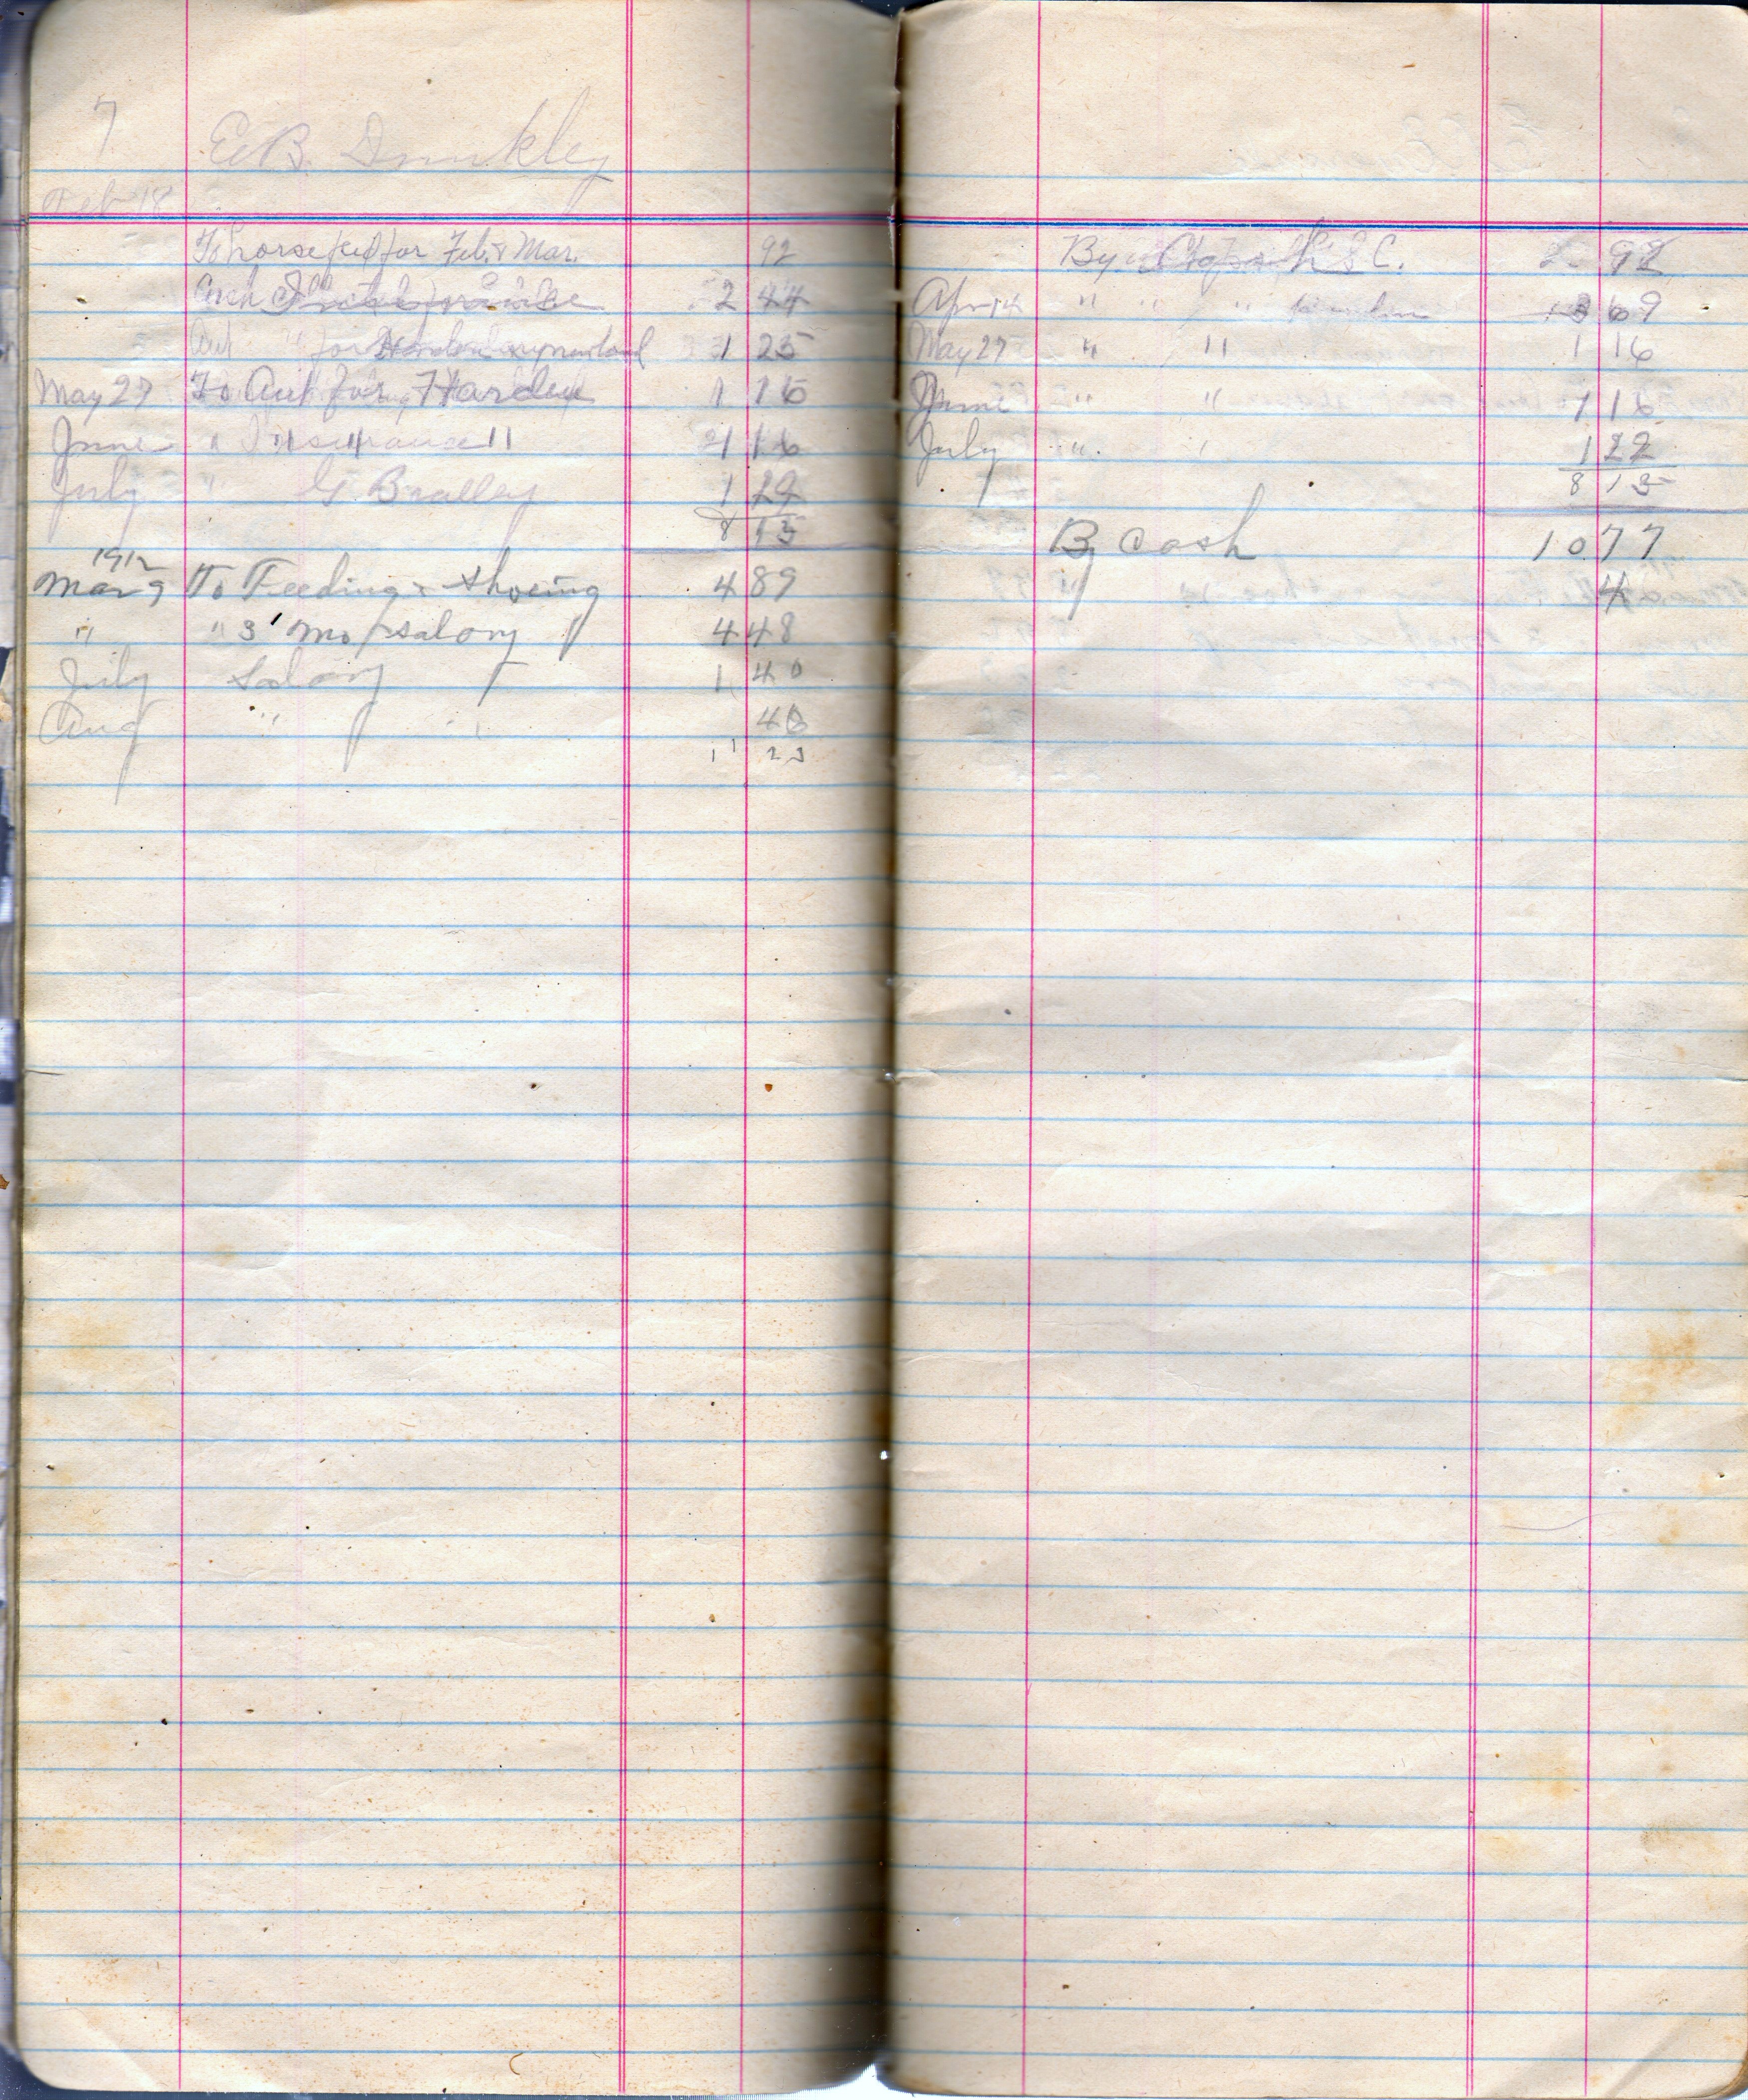 7 E. B. Dunkley
Feb 18
To horse feed for Feb. & Mar. 92
2 44
" for 1 25
May 27 To for Harden 1 16
June " " " 1 16
July " G Bralley 1 22
8 15
1912
Mar 9 To Feeding & Shoeing 4 89
" " 3 mo salary 4 48
July Salary 1 40
Aug " " 46
11 23
By S C. 92
Apr 14 " " " 3 69
May 27 " " 1 16
June " " 1 16
July " " 1 22
8 15
By Cash 10 77